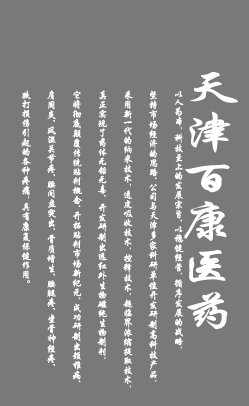 天津百康医药
以人为本，科技至上的发展宗旨，以稳健经营、循序发展的战略，
坚持市场经济的思路，公司与天津多家科研单位开发研制高科技产品，
采用新一代的纳米技术，速度吸收技术，控释技术，超临界浓缩提取技术，
真正实现了药体无铅无毒，开发研制出远红外生物磁健生物制剂，
它将彻底颠覆传统贴剂概念，开拓贴剂市场新纪元，成功研制出颈椎疼、
肩周炎、风湿关节疼、腰间盘突出、骨质增生、腰腿疼、坐骨神经疼、
跌打损伤引起的各种疼痛，具有康复保健作用。